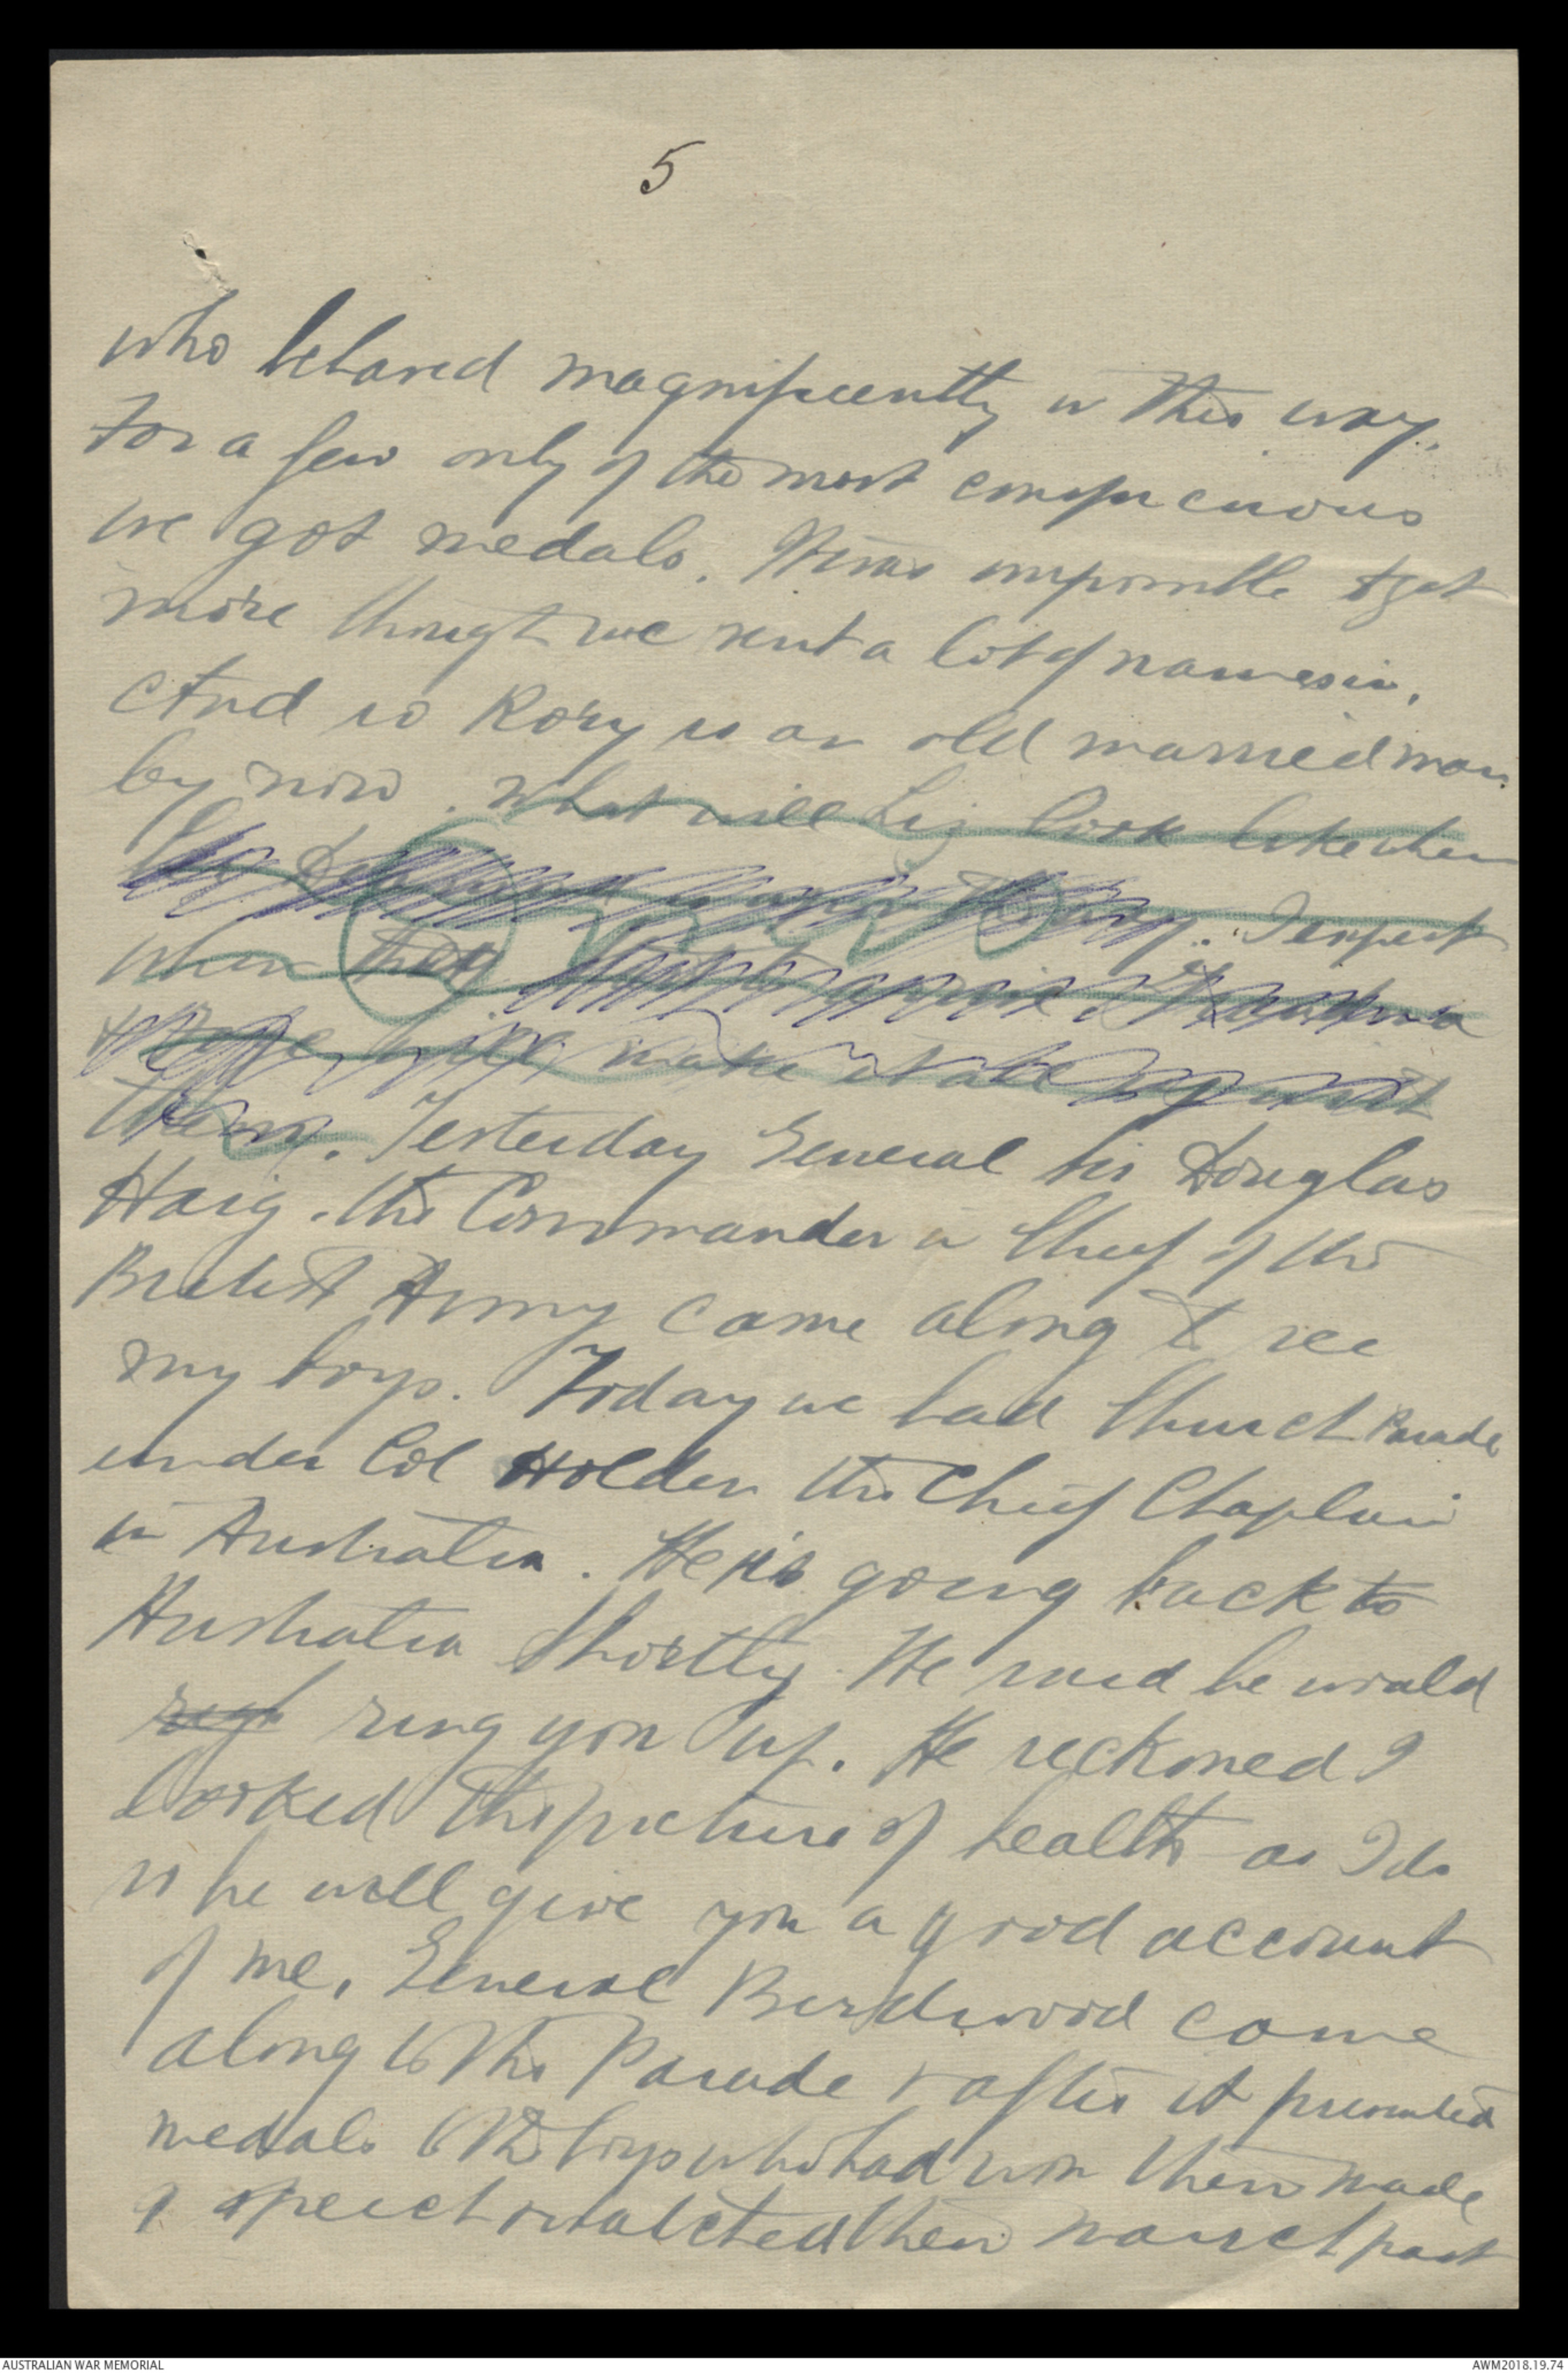 5
who behaved magnificently in this way.
For a few only of the most conspicuous
we got medals. It was impossible to get
more though we sent a lot of names in.
And so Rory is an old married man
by now. What will Liz look like when
I expect
when they
will make it all up with
them. Yesterday General Sir Douglas
Haig. the Commander in Chief of the
British Army came along to see
my boys. Today we had Church Parade
under Col Holden the Chief Chaplain
in Australia. He is going back to
Australia shortly. He said he would
ring you up. He reckoned I
looked the picture of health as I do
so he will give you a good account
of me. General Birdwood came
along to the Parade & after it presented
medals to the boys who had won them made
a speech & watched them march past
AUSTRALIAN WAR MEMORIAL
AWM2018.19.74